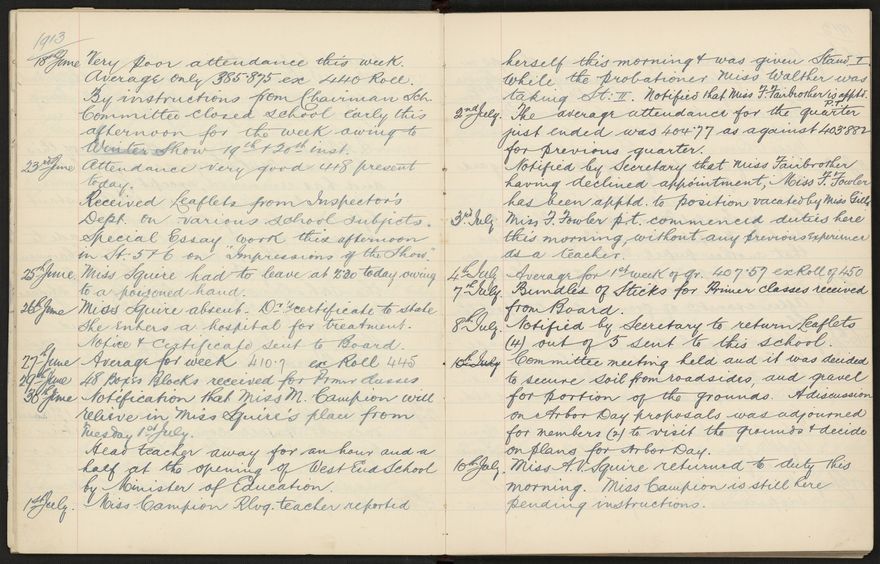 1913
18th June Very poor attendance this week.
Average only 385.875 ex 440 Roll.
By instructions from Chairman Sch.
Committee closed school early this
afternoon for the week owing to
Winter Show 19th & 20th inst.
23rd June Attendance very good 418 present
today.
Received Leaflets from Inspector's
Dept. on various school subjects.
Special Essay work this afternoon
in St. 5 & 6 on "Impressions of the Show."
25th June Miss Squire had to leave at 2.30 today owing
to a poisoned hand.
26th June Miss Squire absent. Dr's certificate to state
she enters a hospital for treatment.
Notice & Certificate sent to Board.
27th June Average for week 410.7 ex Roll 445
29th June 48 Boxes Blocks received for Primer classes
30th June Notification that Miss M. Campion will
relieve in Miss Squire's place from
Tuesday 1st July.
Head teacher away for an hour and a
half at the opening of West End School
by Minister of Education.
1st July. Miss Campion Rlvg. teacher reported
herself this morning & was given Stand I.
while the probationer Miss Walther was
taking St. II. Notified that Miss F. Fairbrother is apptd.
P.T.
2nd July. The average attendance for the quarter
just ended was 404.77 as against 403.882
for previous quarter.
Notified by Secretary that Miss Fairbrother
having declined appointment, Miss F. Fowler
has been apptd. to position vacated by Miss Gill
3rd July. Miss F. Fowler p.t. commenced duties here
this morning, without any previous experience
as a teacher.
4th July Average for 1st week of qr. 407.57 ex Roll of 450
7th July. Bundles of Sticks for Primer classes received
from Board.
8th July. Notified by Secretary to return leaflets
(4) out of 5 sent to this school.
10th July Committee meeting held and it was decided
to secure soil from roadsides, and gravel
for portion of the grounds. A discussion
on Arbor Day proposals was adjourned
for members (2) to visit the grounds & decide
on plans for Arbor Day.
10th July. Miss A.V. Squire returned to duty this
morning. Miss Campion is still here
pending instructions.